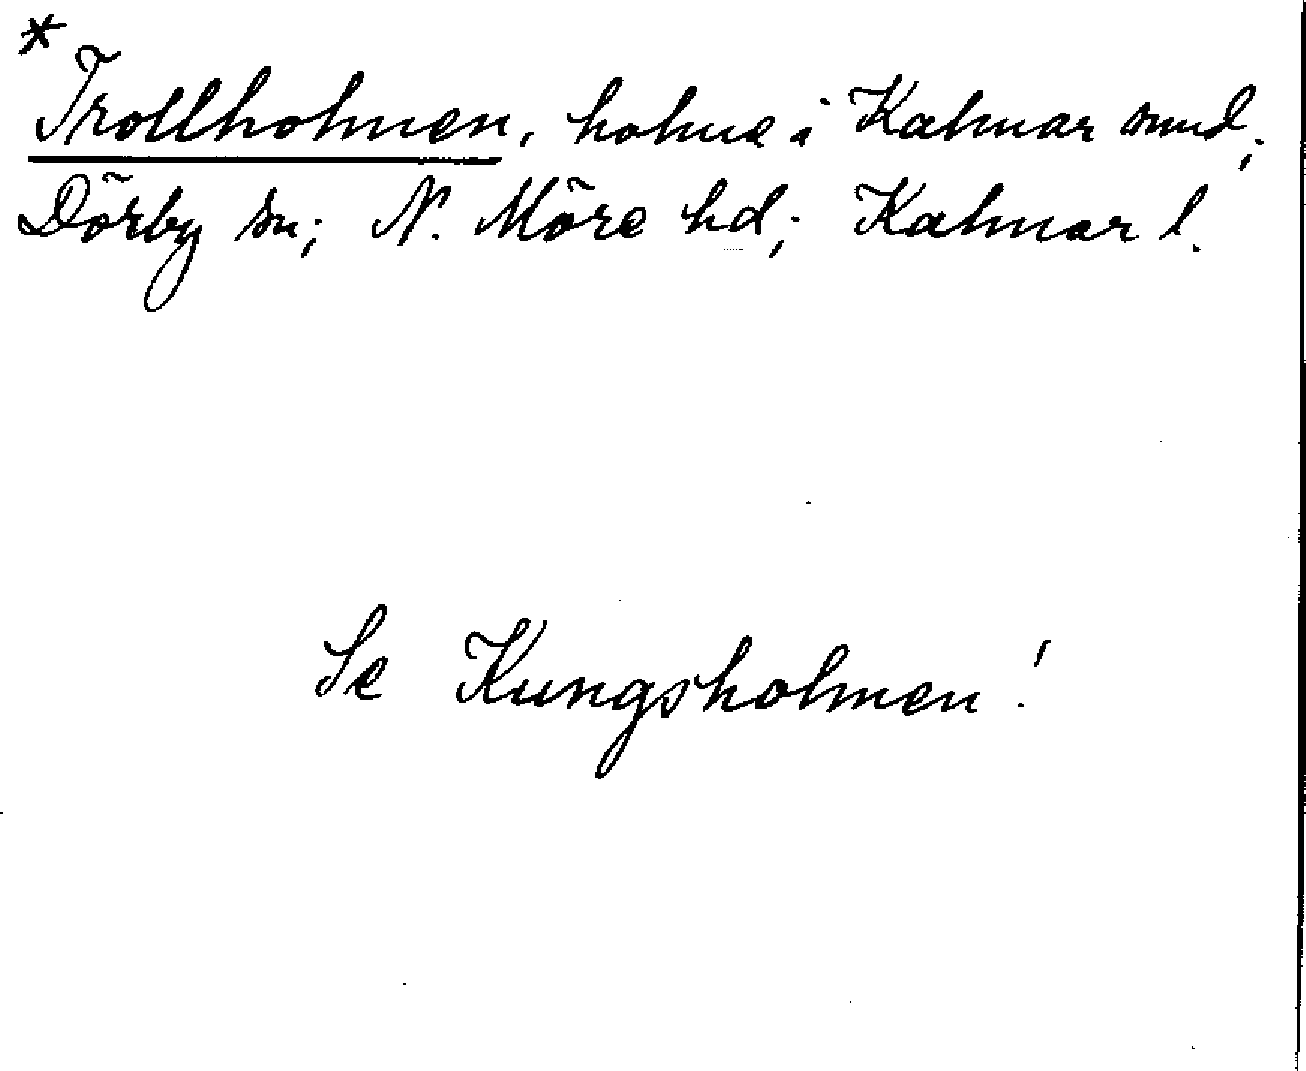 * Trollholmen, holme i Kalmar sund;
Dörby sn; N. Möre hd; Kalmar l.
Se Kungsholmen!